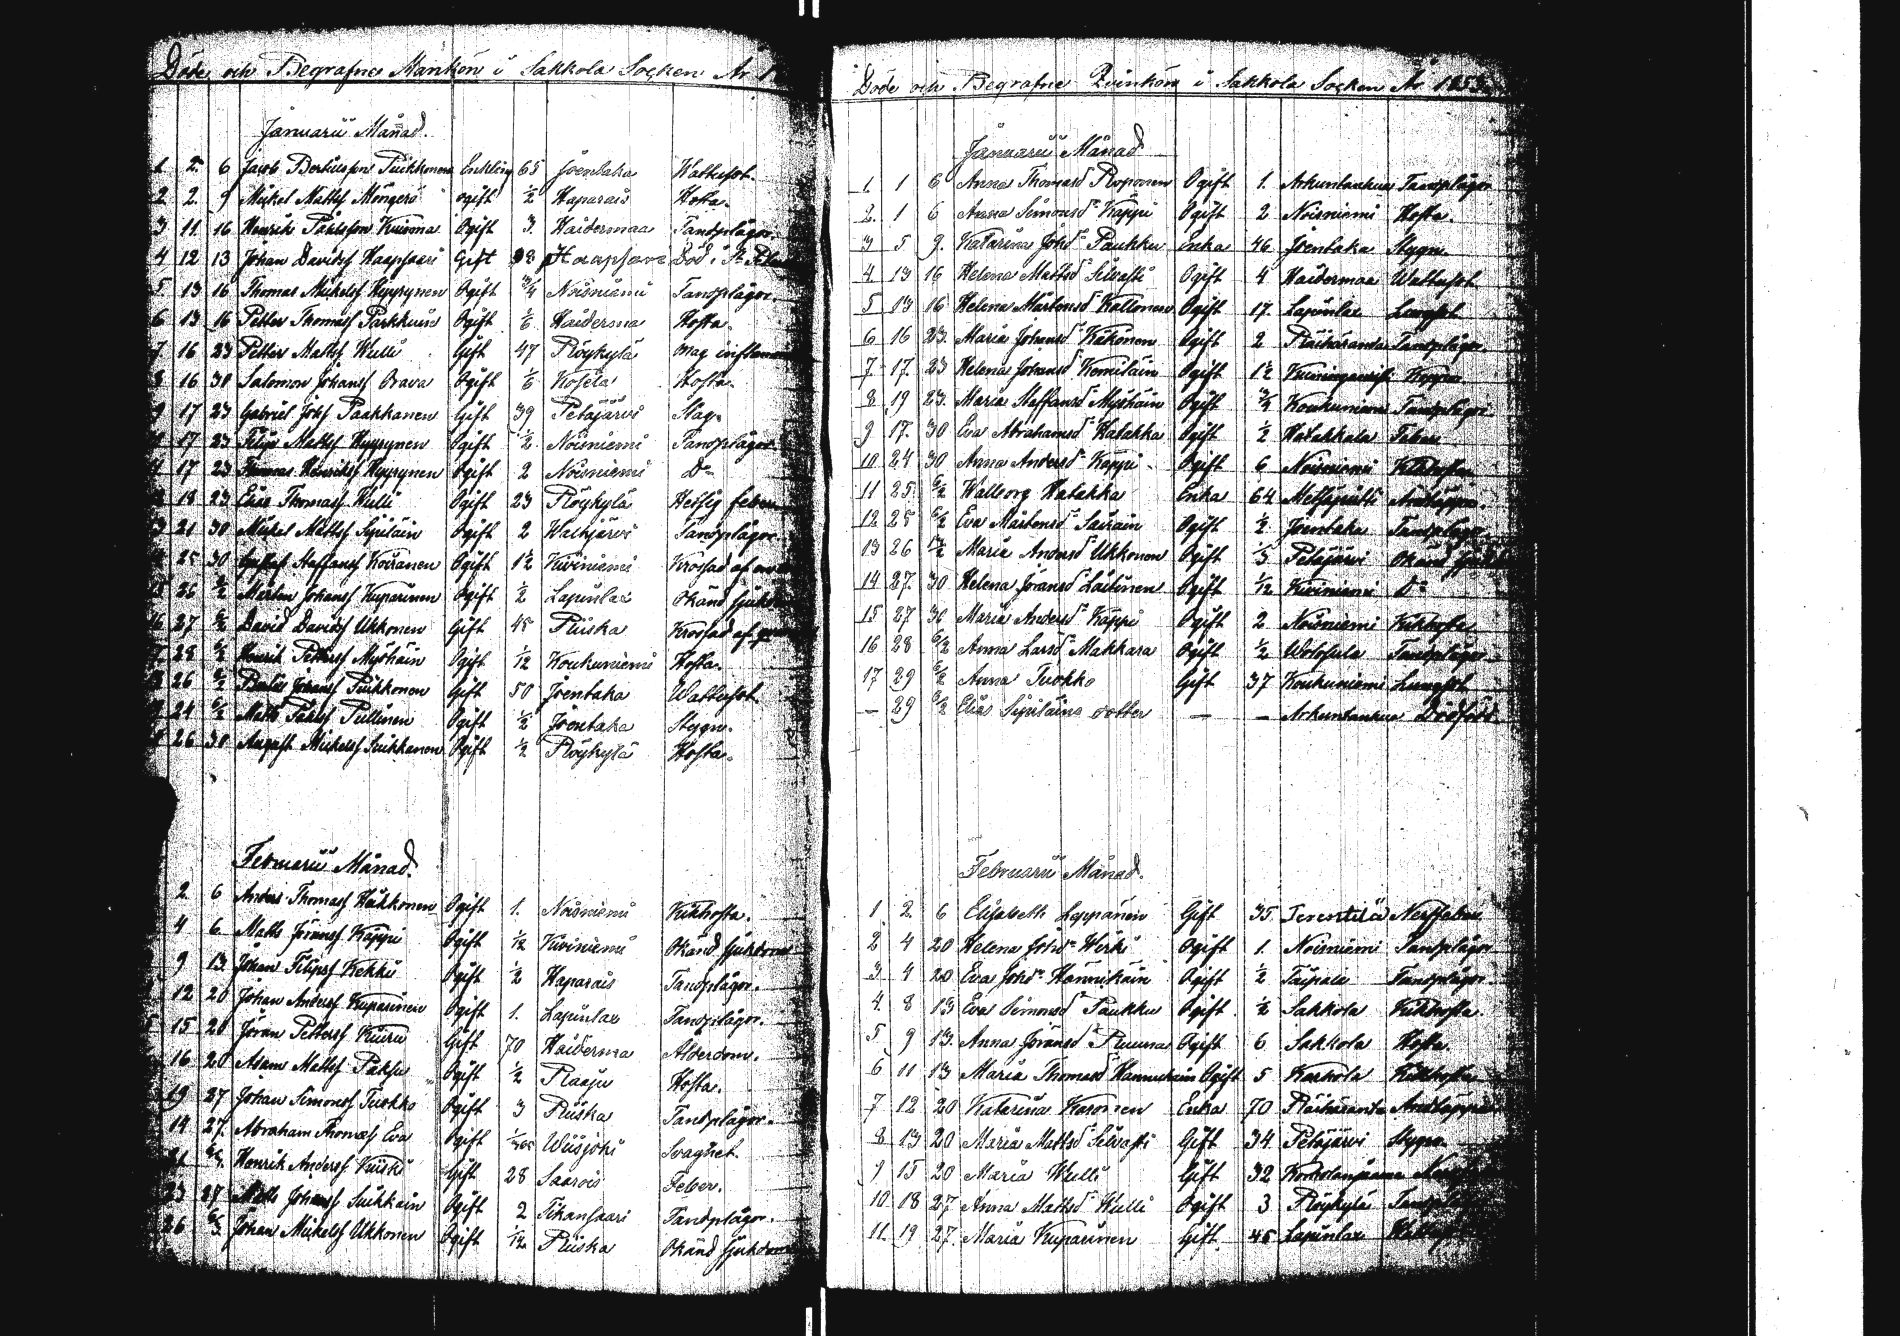 Döde och Begrafne Mankön i Sakkola Socken År
Januarii Månad.
1 2 6 Jacob Puikkonen Enkling 65 Joentaka Wattusot.
2 2 9 Mickel Matts Möngerö ogift ½ Haparais Hosta.
3 11 16 Henrik Påhlsson Kuisma Ogift 3. Haidermaa Tandplågor.
4 12 13 Johan Davids Haapsaari Gift Haapsaari Död i St
5 13 16 Thomas Mickels Hyyrynen Ogift ¾ Noisniemi Tandplågor.
6 13 16 Petter Thomas Parkkuin Ogift Haiderma Hosta.
7 16 23 Petter Matts Wulli Gift 47 Röykylä mag
8 16 30 Salomon Johans Orava Ogift Kosela Hosta.
9 17 23 Gabriel Johs Paakkanen Gift 39 Petäjärvi Slag.
17 23 Filip Matts Hyyrynen Ogift ½ Noisniemi Tandplågor.
17 23 Thomas Henriks Hyyrynen Ogift 2 Noisniemi Do
18 23 Elias Thomas Wulli Ogift 23 Röykylä Hetsig feber
21 30 Mickel Matts Sipiläin Ogift 2 Tandplågor.
25 30 Staffans Koiranen Ogift 1½ Kiviniemi Krossad af
26 Mårten Johans Kuparinen Ogift ½ Lapinlax Okänd Sjukdom
27 David Davids Ukkonen Gift 45 Riiska Krossad af
28 Henrik Petters Myöhäin Ogift 1/12 Koukuniemi Hosta.
26 Johans Puikkonen Gift 50 Joentaka Wattusot.
24 Matts Påhls Pullinen Ogift ½ Joentaka Stygn.
26 30 August Mickels Puikkonen Ogift ½ Röykylä Hosta.
Februarii Månad.
2 6 Anders Thomas Häkkonen Ogift 1. Noisniemi Kikhosta.
4 6 Matts Jörans Käppi Ogift 1/12 Kiviniemi Okänd Sjukdom
9 13 Johan Filips Kekki Ogift ½ Haparais Tandplågor.
12 20 Johan Anders Kuparinen Ogift 1. Lapinlax Tandplågor.
15 20 Jöran Petters Kiuru Gift 70 Haiderma Ålderdom.
16 20 Adam Matts Paksu Ogift ½ Raasu Hosta.
19 27 Johan Simons Tuokko Ogift 3 Riiska Tandplågor.
14 27. Abraham Thomas Eva Ogift Wiisjoki Svaghet.
Henrik Anders Kiiski Gift 28 Saarois Feber.
23 27 Matts Johans Suikkain Ogift 2 Tikansaari Tandplågor.
26 Johan Mickels Ukkonen Ogift 1/12 Riiska Okänd Sjukdom
Döde och Begrafne Qvinkön i Sakkola Socken År 185
Januarii Månad
1. 1 6 Anna Thomasd Roponen Ogift 1. Arkuntankua Tandplågor
2. 1 6 Anna Simonsd Käppi Ogift 2 Noisniemi Hosta.
3 5 9. Katarina Johd Paukku enka 46 Joentaka Stygn.
4. 13 16 Helena Mattsd Silvasti Ogift 4 Haidermaa Wattusot
5 13 16 Helena Mårtensd Kaltonen Ogift 17. Lapinlax Lungsot.
6 16 23. Maria Johansd Käkönen Ogift 2 Räihäranda Tandplågor.
7 17. 23 Helena Johansd Komulain Ogift 1½
8 19 23. Maria Staffansd Myöhäin Ogift ¾ Koukuniemi Tandplågor
9 17. 30 Eva Abrahamsd Hatakka Ogift ½ Hatakkala Feber
10 24 30 Anna Andersd Käppi Ogift 6 Noisniemi Kikhosta
11 25. 6/2 Walborg Hatakka Enka 64 Andtäppa.
12 25 6/2 Eva Mårtensd Ogift ½ Joentaka Tandplågor.
13 26 Maria Andersd Ukkonen Ogift Petäjärvi Okänd Sjukdom
14 27. 30 Helena Jöransd Laitinen Ogift 1/12 Kiviniemi Do
15 27 30 Maria Andersd Käppi Ogift 2 Noisniemi Kikhosta
16 28 6/2 Anna Larsd Makkara Ogift ½ Wolossula Tandplågor.
17 29 6/2 Anna Tuokko Gift 37 Koukuniemi Lungsot
— 29 Elias Sipiläins dotter — — Arkuntankua Dödfödd.
Februarii Månad.
1 2. 6 Elisabeth Leppänen Gift 35. Terentilä Nerffeber
2 4 20 Helena Johd Wirki Ogift 1. Noisniemi Tandplågor
3 4 20 Eva Johd Hannukain Ogift ½ Taipale Tandplågor.
4. 8 13 Eva Simonsd Paukku Ogift ½ Sakkola Kikhosta.
5 9 13. Anna Jöransd Ruuna Ogift 6 Sakkola Hosta.
6 11 13 Maria Thomasd Hannukain Ogift 5 Karkola Kikhosta
7 12 20 Katarina Karonen Enka 70 Räihäranda Andtäppa
8 13 20 Maria Mattsd Silvasti Gift 34 Petäjärvi Stygn.
9 15 20 Maria Wulli Gift 32
10 18 27 Anna Mattsd Wulli Ogift 3 Röykylä Tandplågor
11. 19 27. Maria Kuparinen Gift 45 Lapinlax